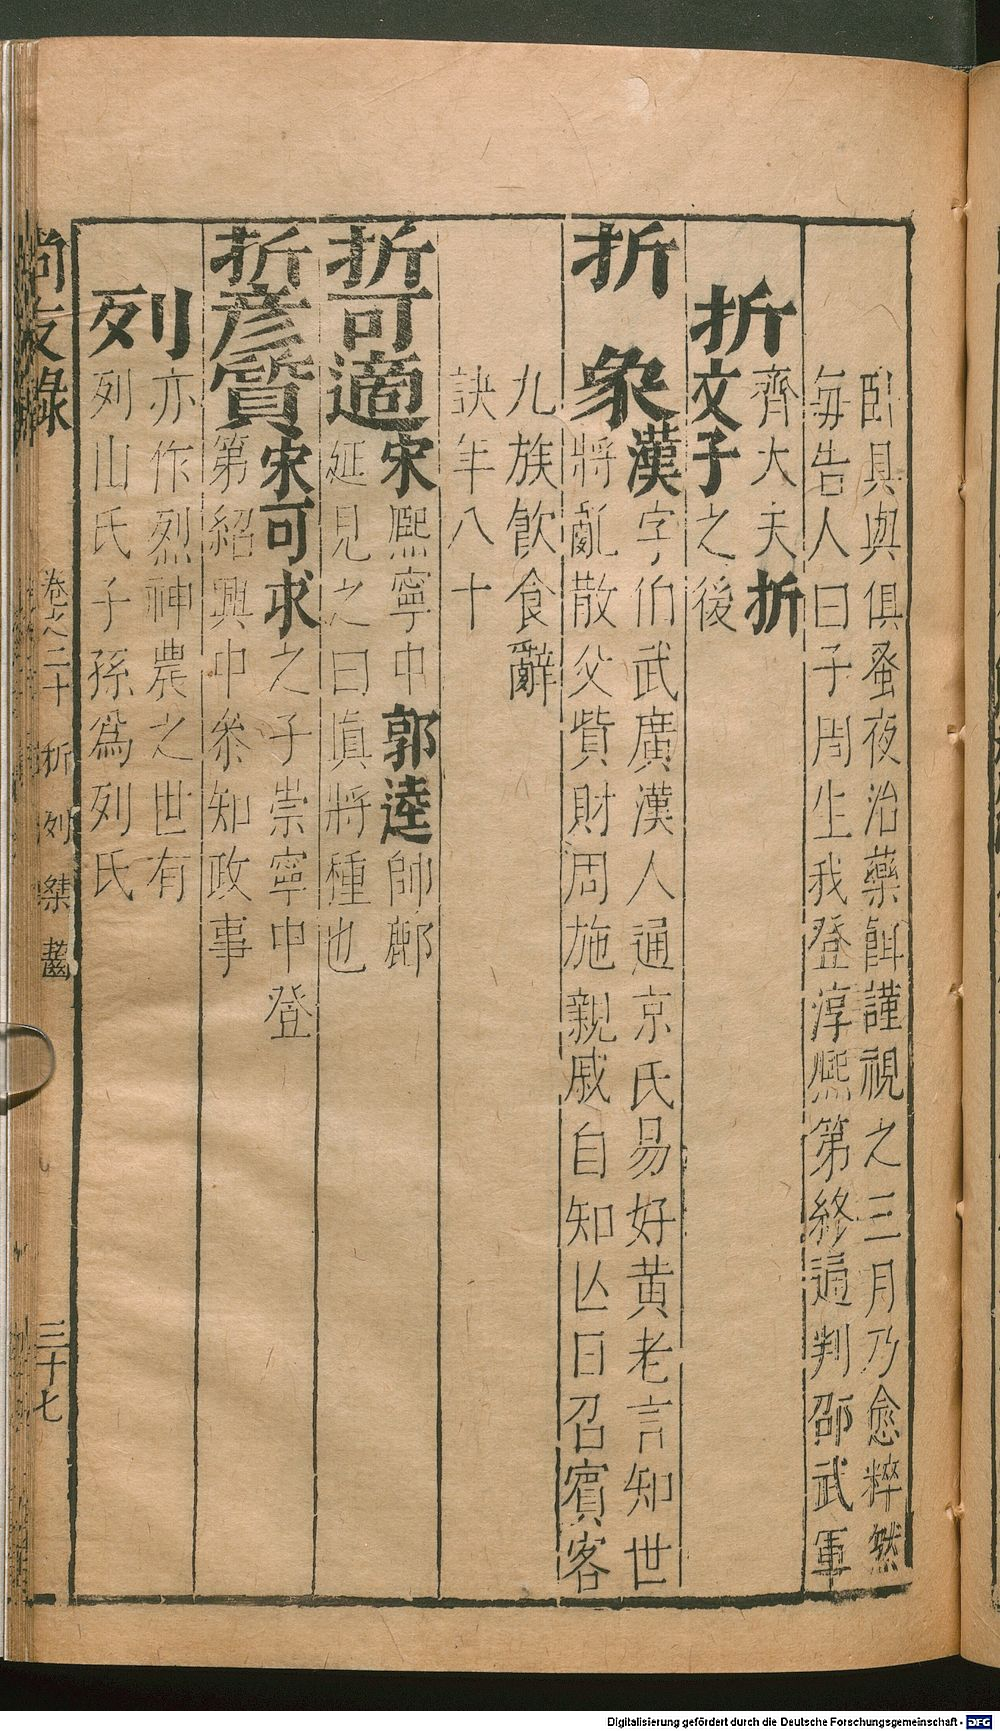 臥具與俱蚤夜治藥餌謹視之三月乃愈粹然
每告人曰子周生我登淳熈第終通判邵武軍
折
齊大夫折
文子之後
折
象
漢字伯武廣漢人通京氏易好黄老言知世
將亂散父貲財周施親戚自知亾日召賓客
九族飲食辭
訣年八十
折可適
宋熈寧中郭逵帥鄜
延見之曰眞將種也
折彦質
宋可求之子崇寧中登
第紹興中叅知政事
列
亦作烈神農之世有
列山氏子孫爲列氏
尚友錄
卷之二十
折列桀
三十七
Digitalisierung gefördert durch die Deutsche Forschungsgemeinschaft - DFG